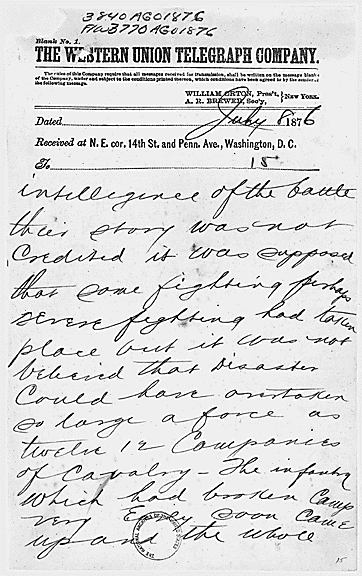 3840 AGO 1876
F/W 3770 AGO 1876
Blank No. 1.
THE WESTERN UNION TELEGRAPH COMPANY.
The rules of this Company require that all messages received for transmission, shall be written on the message blanks
of the Company, under and subject to the conditions printed thereon, which conditions have been agreed to by the sender of
the following message.
WILLIAM ORTON, Pres't,
A. R. BREWER, Sec'y, } New York.
Dated July 8 1876
Received at N. E. cor. 14th St. and Penn. Ave., Washington, D. C.
To 15
intelligence of the battle
their story was not
credited it was supposed
that some fighting perhaps
severe fighting had taken
place but it was not
believed that disaster
could have overtaken
so large a force as
twelve 12 Companies
of Cavalry – The infantry
which had broken camp
very Early soon came
up and the whole
15